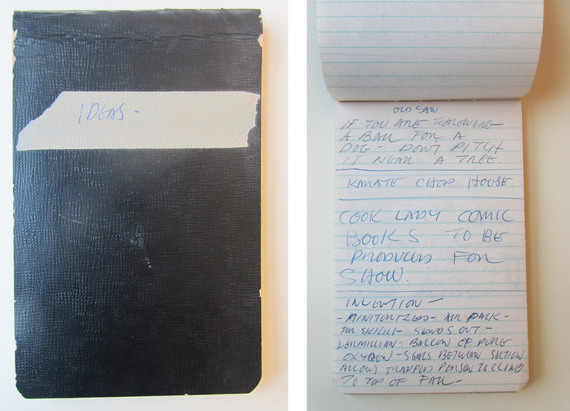 IDEAS -
OLD SAW
IF YOU ARE THROWING
A BALL FOR A
DOG - DON'T PITCH
IT NEAR A TREE.
KARATE CHOP HOUSE.
COOK LADY COMIC
BOOKS TO BE
PRODUCED FOR
SHOW.
INVENTION -
- MINITORIZED - AIR PACK -
FOR SKIIER - SENDS OUT -
VERMILLIAN - BALLON OF PURE
OXYGEN - SEALS BETWEEN SECTION
ALLOWS TRAPPED PERSON TO CLIMB
TO TOP OF FALL -